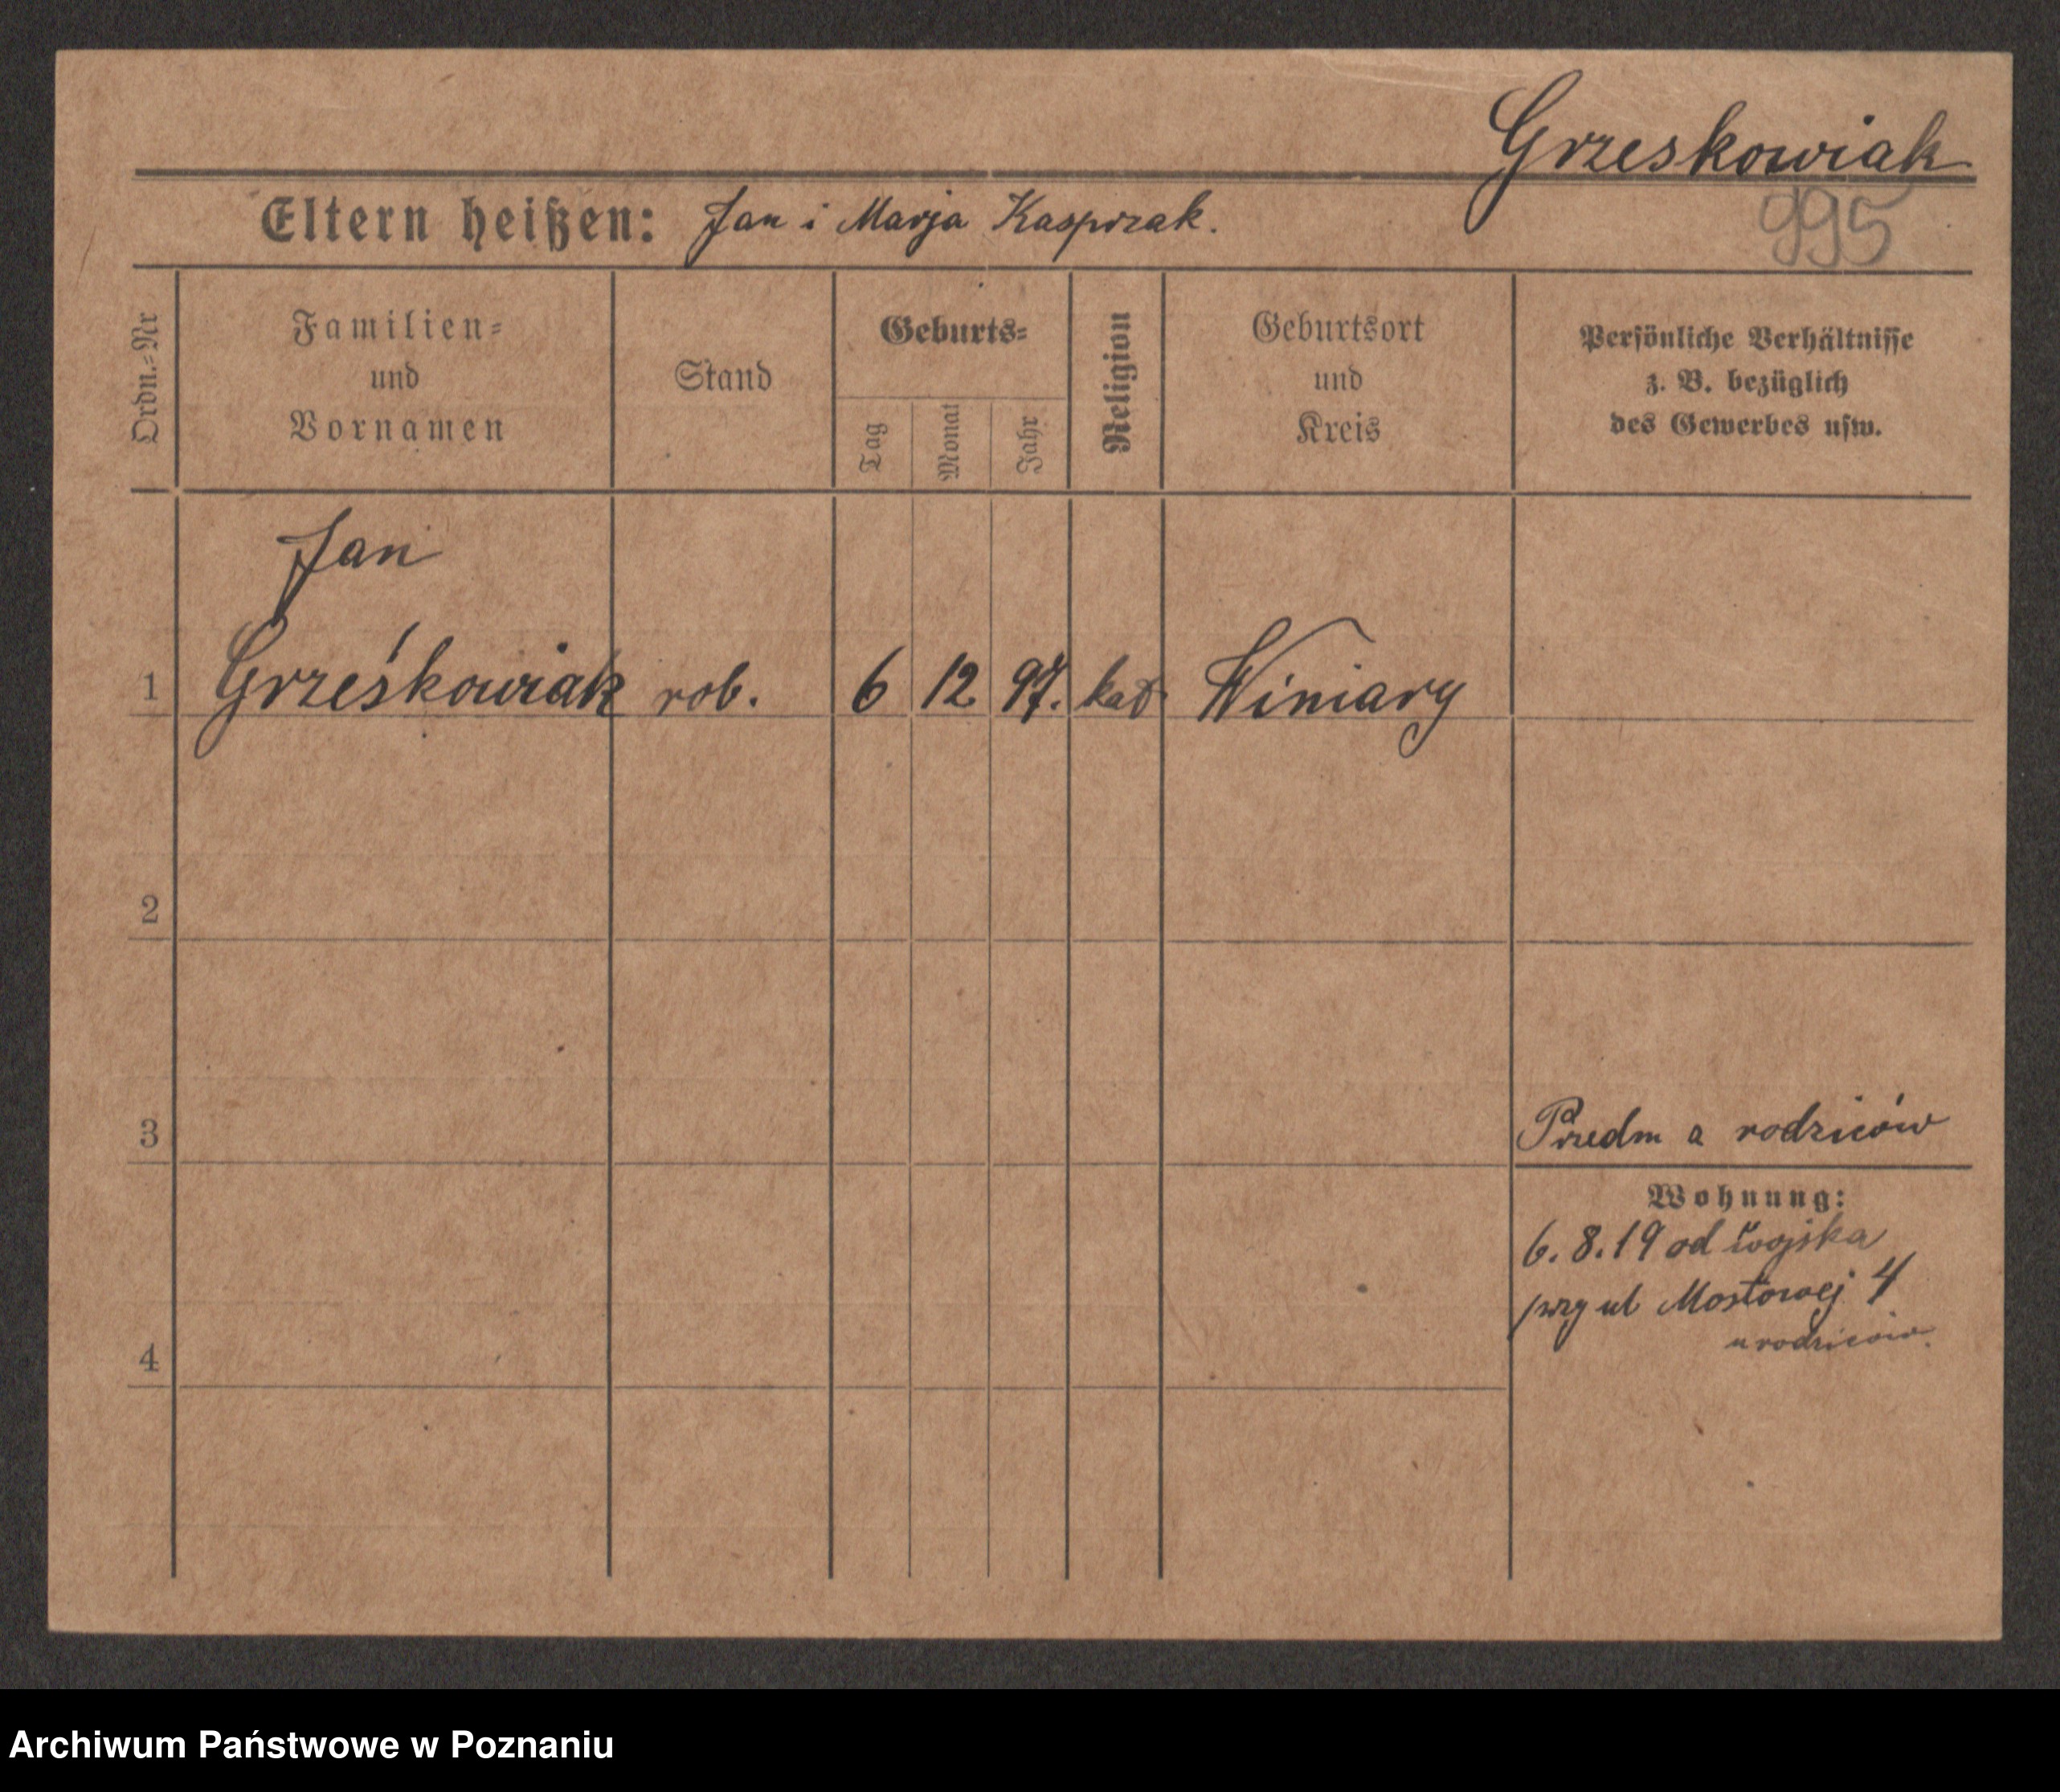 Grzeskowiak
Eltern heißen: Jan i Marja Kasprzak.
995
Ordn.-Nr
Familien-
und
Vornamen
Stand
Geburts-
Tag
Monat
Jahr
Religion
Geburtsort
und
Kreis
Persönliche Verhältnisse
z. B. bezüglich
des Gewerbes usw.
Jan
1 Grześkowiak rob. 6 12 97. kat. Winiary
2
3
a rodziców
Wohnung:
6. 8. 19 od wojska
przy ul Mostowej 4
u rodziców.
4
Archiwum Państwowe w Poznaniu